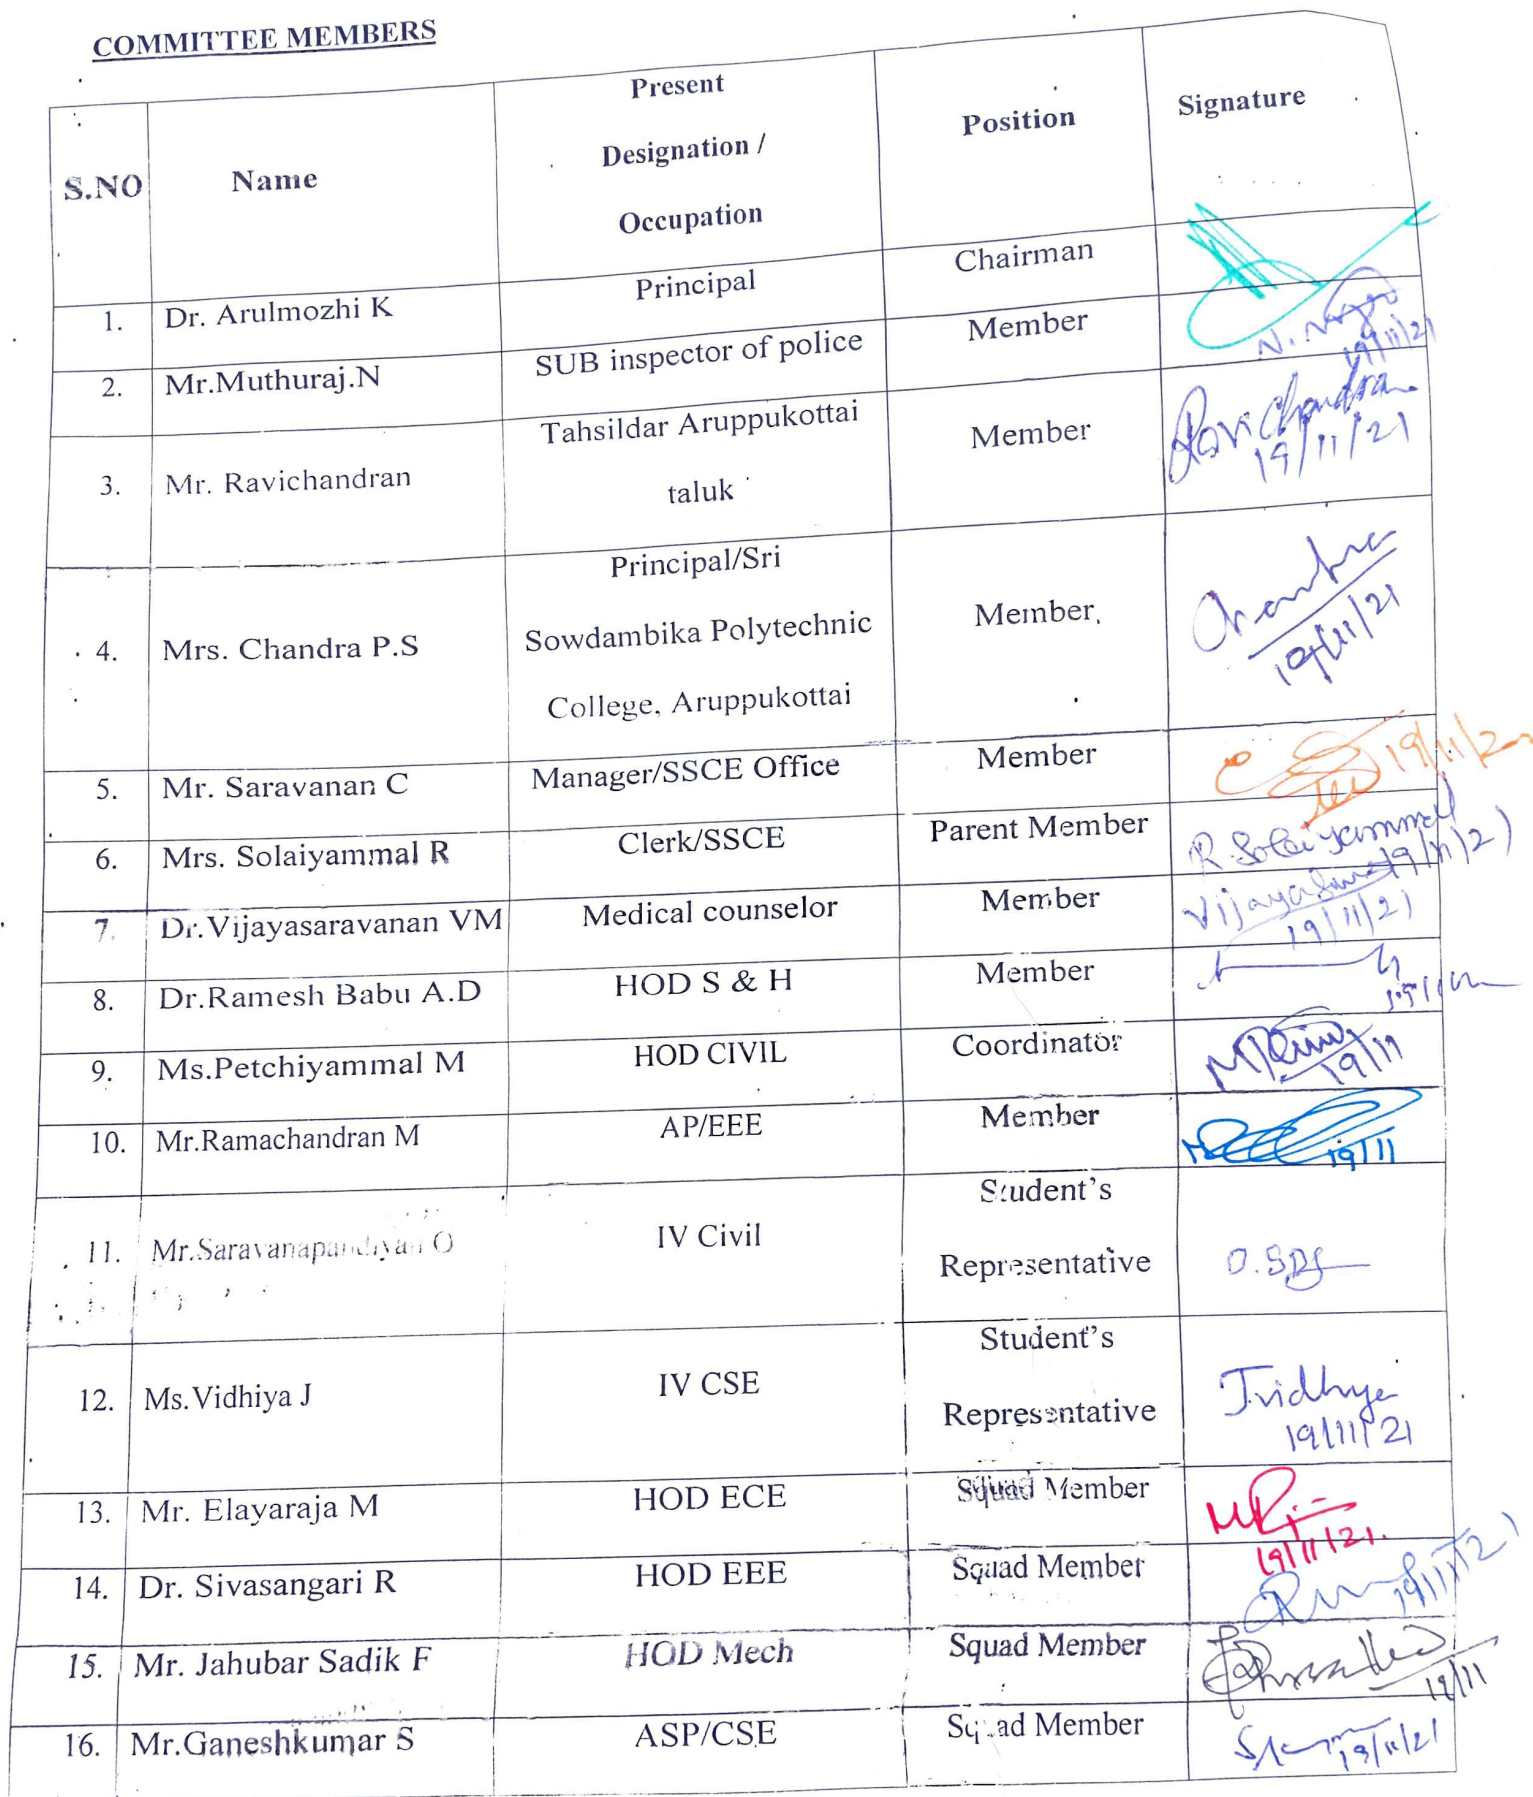 COMMITTEE MEMBERS
S.NO
Name
Present
Designation /
Occupation
Position
Signature
1.
Dr. Arulmozhi K
Principal
Chairman
2.
Mr.Muthuraj.N
SUB inspector of police
Member
19/11/21
3.
Mr. Ravichandran
Tahsildar Aruppukottai
taluk
Member
Ravichandran
19/11/21
4.
Mrs. Chandra P.S
Principal/Sri
Sowdambika Polytechnic
College, Aruppukottai
Member
Chandra
19/11/21
5.
Mr. Saravanan C
Manager/SSCE Office
Member
19/11/2
6.
Mrs. Solaiyammal R
Clerk/SSCE
Parent Member
R. Solaiyammal
19/11/21
7.
Dr.Vijayasaravanan VM
Medical counselor
Member
19/11/21
8.
Dr.Ramesh Babu A.D
HOD S & H
Member
9.
Ms.Petchiyammal M
HOD CIVIL
Coordinator
19/11
10.
Mr.Ramachandran M
AP/EEE
Member
19/11
11.
Mr.Saravanapandiyan O
IV Civil
Student's
Representative
12.
Ms.Vidhiya J
IV CSE
Student's
Representative
J.vidhya
19/11/21
13.
Mr. Elayaraja M
HOD ECE
Squad Member
19/11/21.
14.
Dr. Sivasangari R
HOD EEE
Squad Member
19/11/21
15.
Mr. Jahubar Sadik F
HOD Mech
Squad Member
19/11
16.
Mr.Ganeshkumar S
ASP/CSE
Squad Member
19/11/21